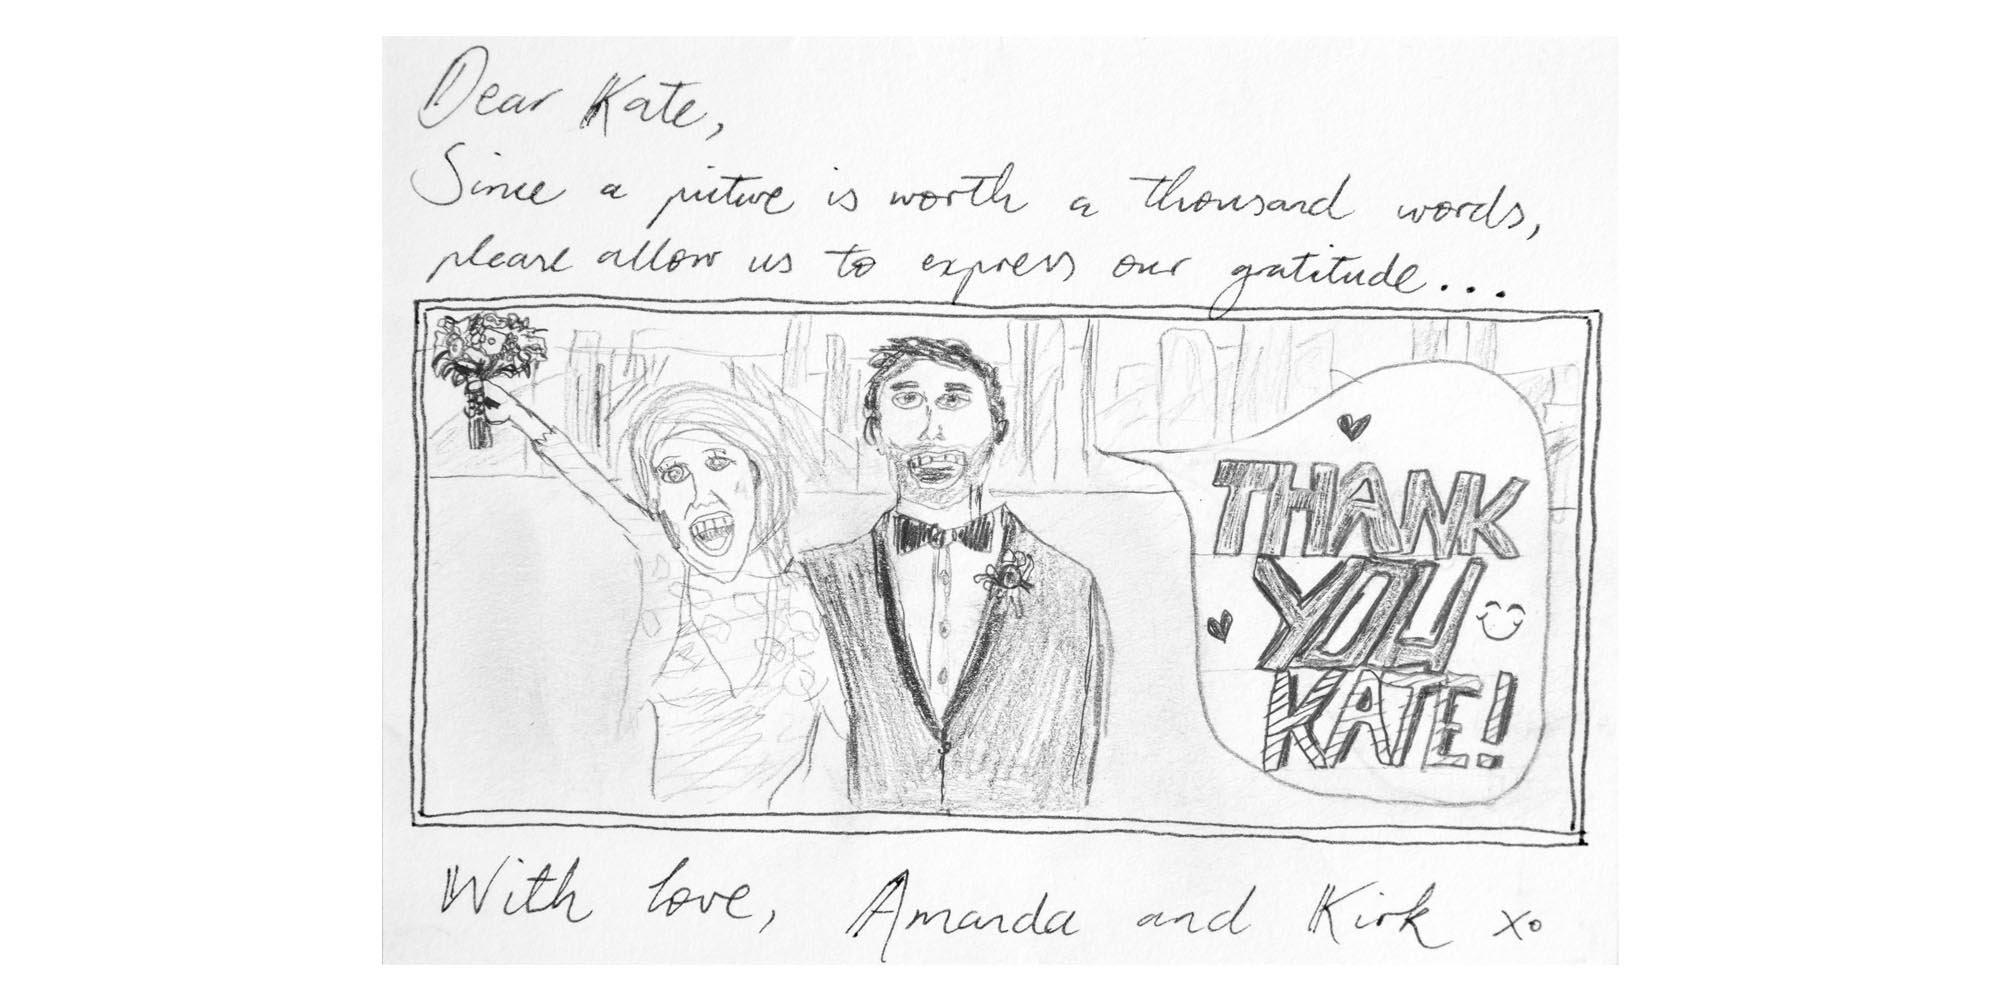 Dear Kate,
Since a picture is worth a thousand words,
please allow us to express our gratitude...
THANK
YOU
KATE!
With love, Amanda and Kirk xo